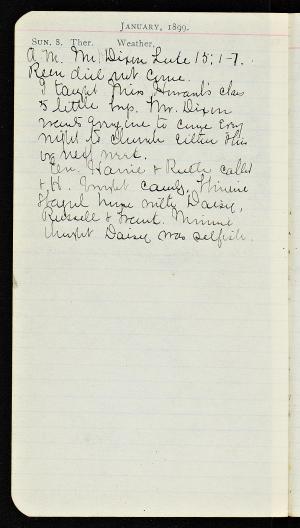 JANUARY, 1899.
SUN. 8. Ther. Weather.
A. M. Mr Dixon Luke 15; 1-7.
Reen did not come.
I taught Miss class
5 little boys. Mr. Dixon
wants everyone to come Every
night to church either this
or next
Eve. Harrie & Ruth called
& H. brought candy.
with Daisy,
Russell & Minnie
thought Daisy was selfish.